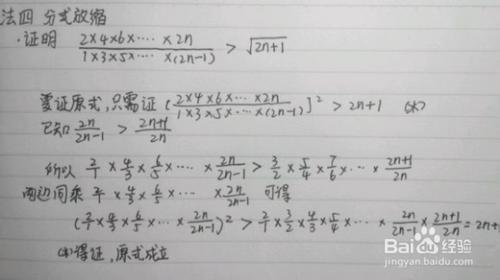 法四 分式放缩
·证明 (2×4×6×····×2n)/(1×3×5×····×(2n-1)) > √(2n+1)
要证原式,只需证 [(2×4×6×····×2n)/(1×3×5×····×(2n-1))]² > 2n+1 (*)
已知 2n/(2n-1) > (2n+1)/2n
所以 2/1 × 4/3 × 6/5 ×····× 2n/(2n-1) > 3/2 × 5/4 × 7/6 ×····× (2n+1)/2n
两边同乘 2/1 × 4/3 × 6/5 ×····× 2n/(2n-1) 可得
(2/1 × 4/3 × 6/5 ×····× 2n/(2n-1))² > 2/1 × 3/2 × 4/3 × 5/4 ×····× 2n/(2n-1) × (2n+1)/2n = 2n+1
(*)得证,原式成立
Bai 经验